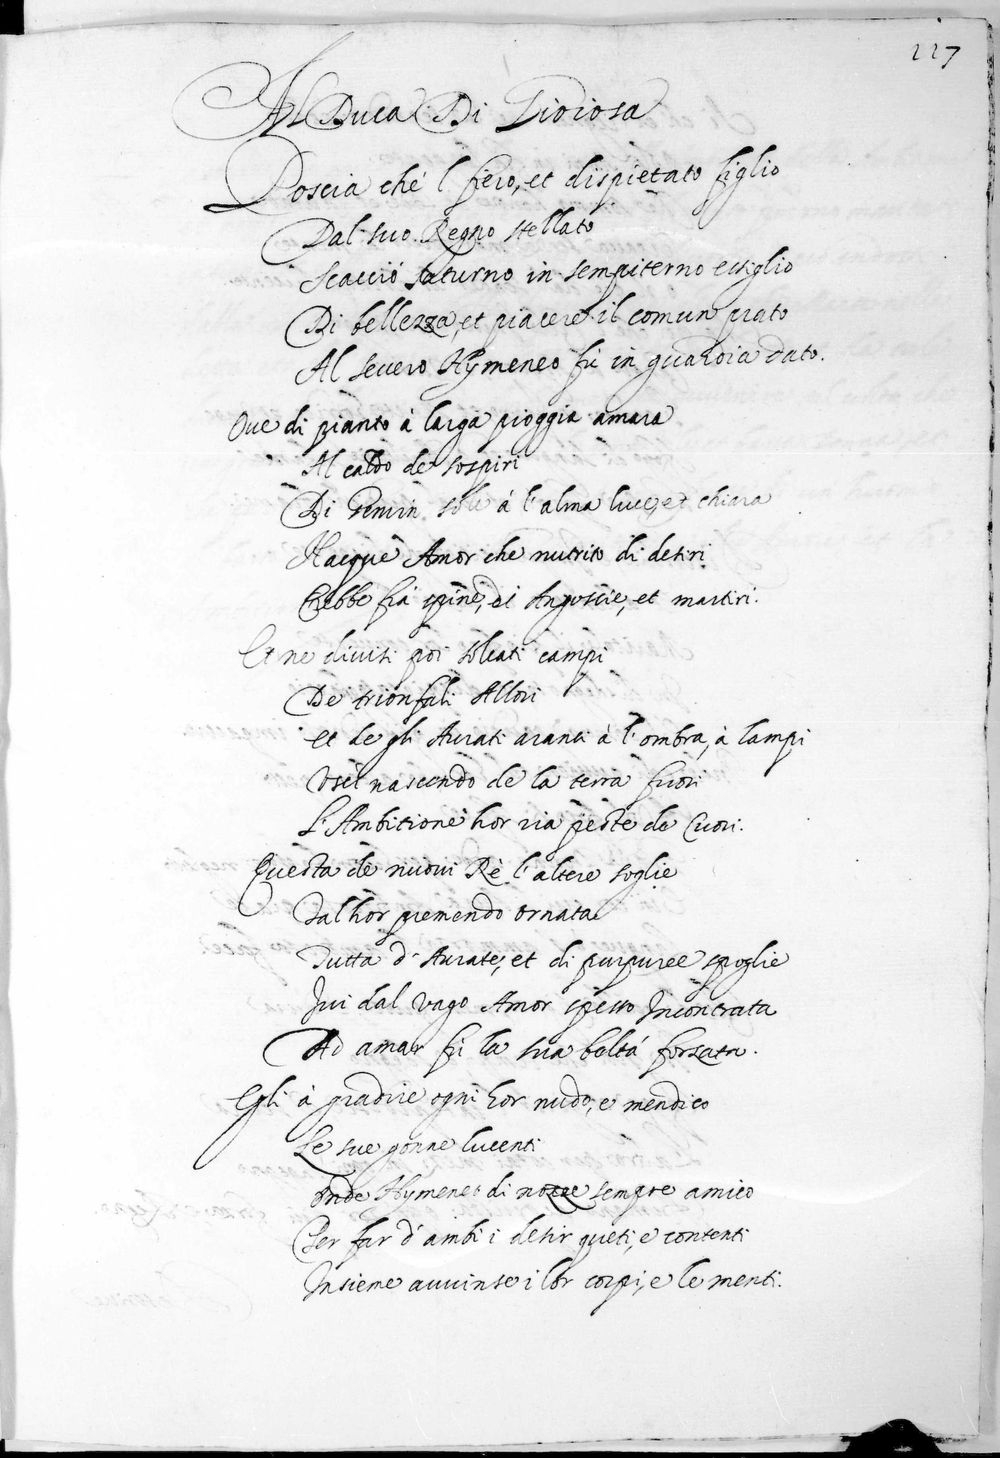 227
Al Duca Di Gioiosa
Poscia che'l fiero, et dispietato figlio
Dal suo Regno stellato
Scacciò Saturno in sempiterno essiglio
Di bellezza, et piacere il comun prato
Al severo Hymeneo fù in guardia dato.
Ove di pianto à larga pioggia amara
Al caldo de sospiri
Di Gemin sole à l'alma luce, et chiara
Nacque Amor che nutrito di desiri
Crebbe frà spine, di Angoscie, et martiri.
Et ne divisi poi solcati campi
De trionfali Allori
et de gli Aurati aranti à l'ombra, à lampi
Uscì nascendo de la terra fuori
L'Ambitione hor ria peste de Cuori.
Questa de nuovi Rè l'altere soglie
Talhor premendo ornata
Tutta d'Aurate, et di purpuree spoglie
Ivi dal vago Amor spesso Incontrata
Ad amar fù la sua beltà forzata.
Egli à gradire ogni hor nudo, e mendico
Le sue gonne lucenti
onde Hymeneo di nozze sempre amico
Per far d'ambi i desir queti, e contenti
Insieme avvinse i lor corpi, e le menti.